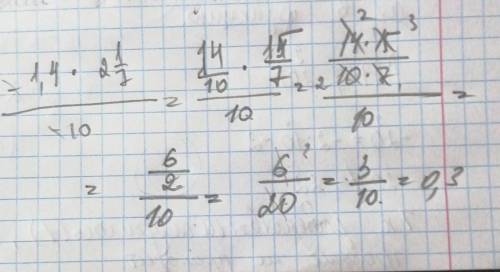 (-1,4 · 2 1/7)/(-10) = (14/10 · 15/7)/10 = ((14 2 · 15 3)/(2 10 · 7 1))/10 =
= (6/2)/10 = 6 3/20 = 3/10 = 0,3